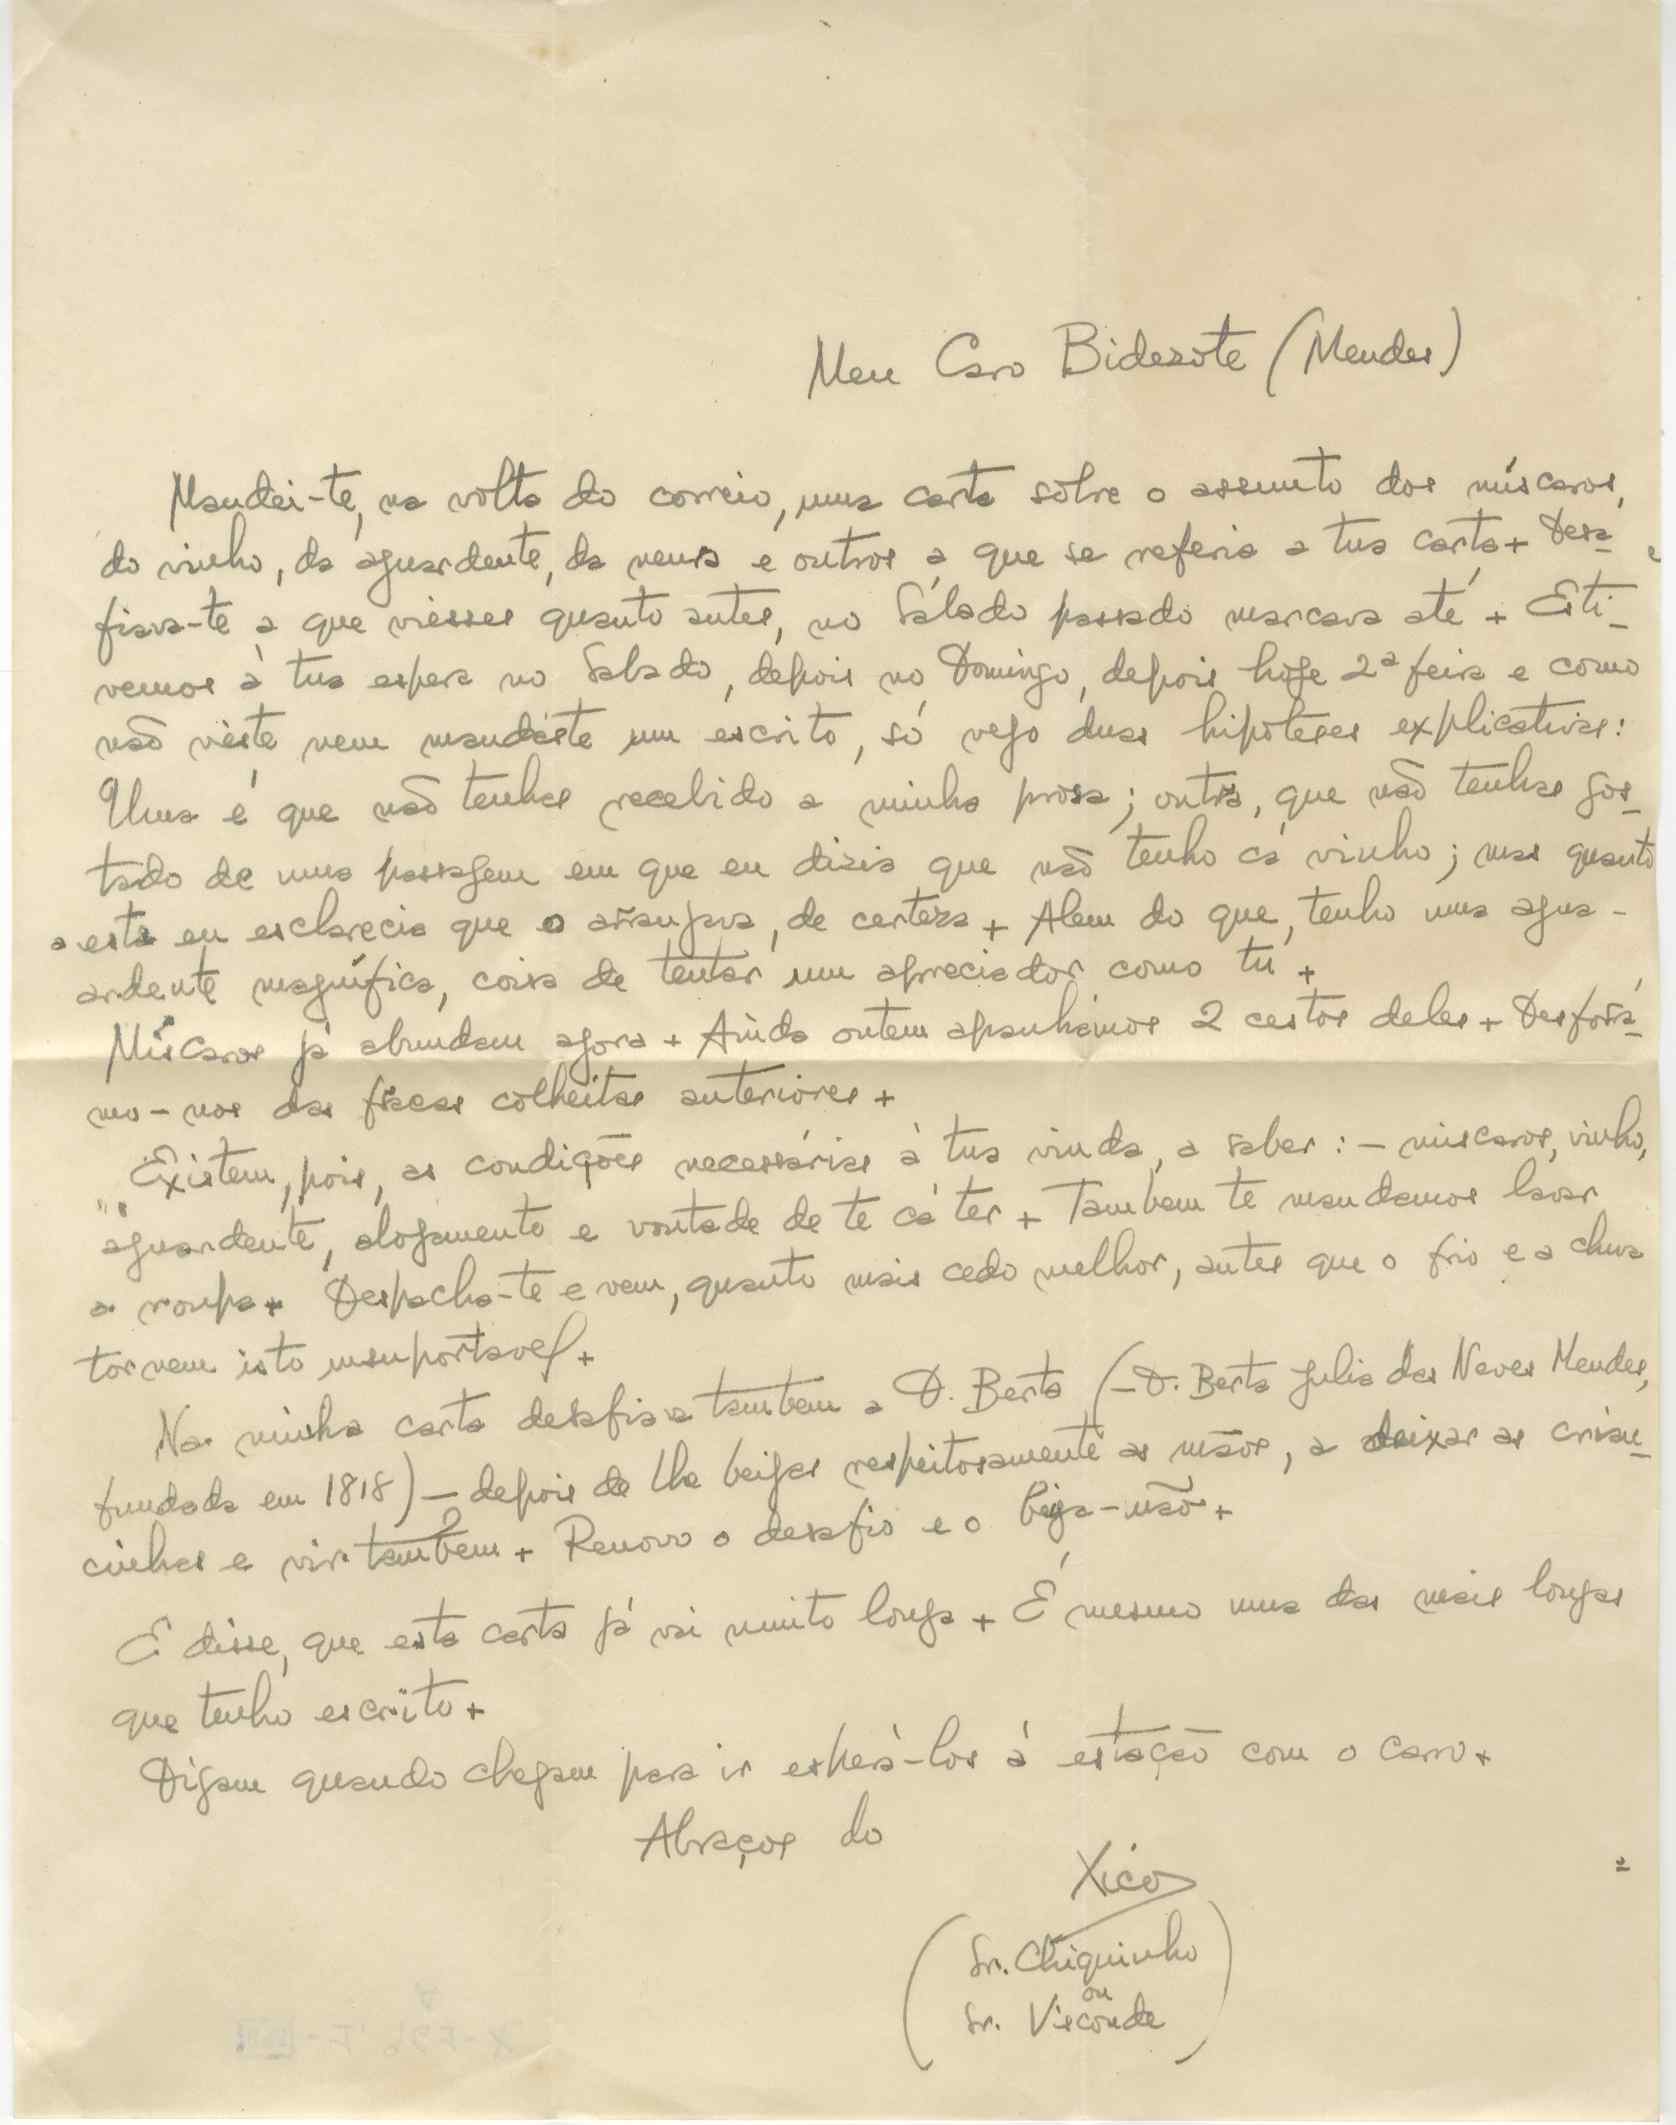 Meu Caro Biderote (Mendes)
Mandei-te, na volta do correio, uma carta sôbre o assunto dos míscaros,
do vinho, da aguardente, da neura e outros a que se referia a tua carta + Desa-
fiava-te a que viesses quanto antes, no Sábado passado marcava até + Esti-
vemos à tua espera no Sabado, depois no Domingo, depois hoje 2ª feira e como
não viéste nem mandáste um escrito, só vejo duas hipóteses explicativas:
Uma é que não tenhas recebido a minha prosa; outra, que não tenhas gos-
tado de uma passagem em que eu dizia que não tenho cá vinho; mas quanto
a esta eu esclarecia que o arranjava, de certeza + Alem do que, tenho uma agua-
ardente magnífica, coisa de tentar um apreciador como tu +
Míscaros já abundam agora + Ainda ontem apanhámos 2 cestos deles + Desforrá-
mo-nos das fracas colheitas anteriores +
Existem, pois, as condições necessárias à tua vinda, a saber: - miscaros, vinho,
aguardente, alojamento e vontade de te cá ter + Tambem te mandamos lavar
a roupa + Despacha-te e vem, quanto mais cedo melhor, antes que o frio e a chuva
tornem isto insuportavel +
Na minha carta desafiava tambem a D. Berta (- D. Berta Julia das Neves Mendes,
fundada em 1818) - depois de lhe beijar respeitosamente as mãos, a deixar as crian-
cinhas e vir tambem + Renovo o desafio e o beija-mão +
E disse, que esta carta já vai muito longa + É mesmo uma das mais longas
que tenho escrito +
Digam quando chegam para ir esperá-los á estação com o carro +
Abraços do
Xico
(Sr. Chiquinho
ou
Sr. Visconde)